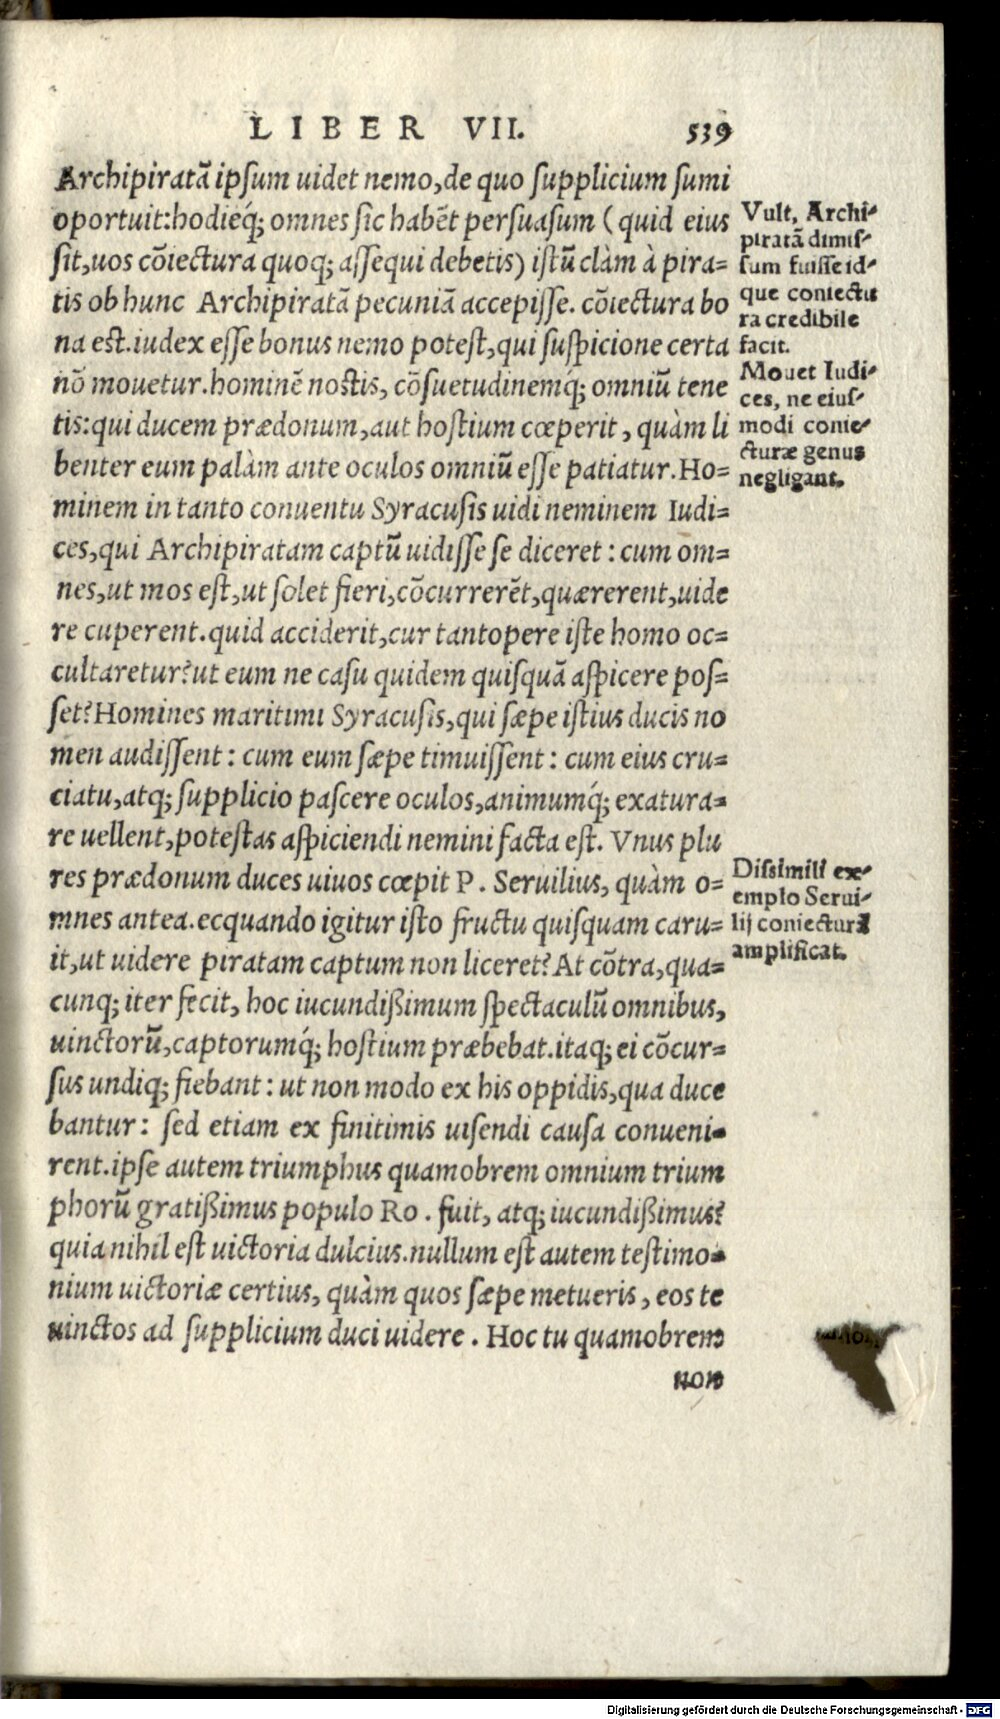 LIBER VII. 539
Archipiratã ipsum uidet nemo, de quo supplicium sumi
oportuit: hodieq́; omnes sic habẽt persuasum (quid eius
sit, uos cõiectura quoq; assequi debetis) istũ clàm à pira=
tis ob hunc Archipiratã pecuniã accepisse. cõiectura bo
na est. iudex esse bonus nemo potest, qui suspicione certa
nõ mouetur. hominẽ nostis, cõsuetudinemq́; omniũ tene
tis: qui ducem prædonum, aut hostium cœperit, quàm li
benter eum palàm ante oculos omniũ esse patiatur. Ho=
minem in tanto conuentu Syracusis uidi neminem Iudi=
ces, qui Archipiratam captũ uidisse se diceret: cum om=
nes, ut mos est, ut solet fieri, cõcurrerẽt, quærerent, uide
re cuperent. quid acciderit, cur tantopere iste homo oc=
cultaretur? ut eum ne casu quidem quisquã aspicere pos=
set? Homines maritimi Syracusis, qui sæpe istius ducis no
men audissent: cum eum sæpe timuissent: cum eius cru=
ciatu, atq; supplicio pascere oculos, animumq́; exatura=
re uellent, potestas aspiciendi nemini facta est. Vnus plu
res prædonum duces uiuos cœpit P. Seruilius, quàm o=
mnes antea. ecquando igitur isto fructu quisquam caru=
it, ut uidere piratam captum non liceret? At cõtra, qua=
cunq; iter fecit, hoc iucundißimum spectaculũ omnibus,
uinctorũ, captorumq́; hostium præbebat. itaq; ei cõcur=
sus undiq; fiebant: ut non modo ex his oppidis, qua duce
bantur: sed etiam ex finitimis uisendi causa conueni=
rent. ipse autem triumphus quamobrem omnium trium
phorũ gratißimus populo Ro. fuit, atq; iucundißimus?
quia nihil est uictoria dulcius. nullum est autem testimo=
nium uictoriæ certius, quàm quos sæpe metueris, eos te
uinctos ad supplicium duci uidere. Hoc tu quamobrem
non
Vult, Archi-
piratã dimis-
sum fuisse id-
que coniectu
ra credibile
facit.
Mouet Iudi-
ces, ne eius-
modi conie-
cturæ genus
negligant.
Dissimili ex-
emplo Serui-
lij coniecturã
amplificat.
Digitalisierung gefördert durch die Deutsche Forschungsgemeinschaft - DFG